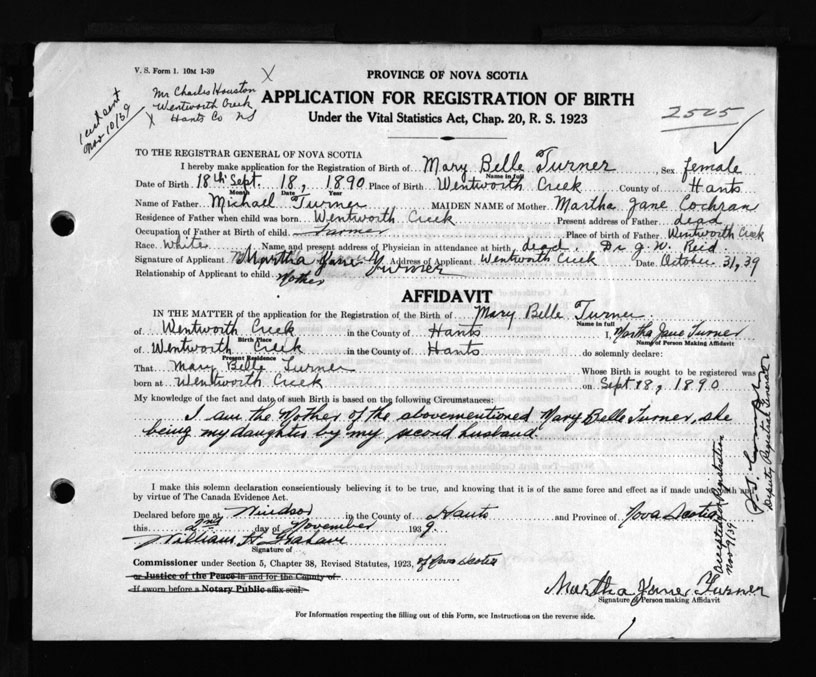 V. S. Form 1. 10M 1-39
X
1 cert sent
Nov 10/39
Mr Charles Houston
Wentworth Creek
X Hants Co NS
PROVINCE OF NOVA SCOTIA
APPLICATION FOR REGISTRATION OF BIRTH
Under the Vital Statistics Act, Chap. 20, R. S. 1923
2505
TO THE REGISTRAR GENERAL OF NOVA SCOTIA
I hereby make application for the Registration of Birth of Mary Belle Turner Sex female
Name in full
Date of Birth 18th Sept. 18, 1890 Place of Birth Wentworth Creek County of Hants
Month Date Year
Name of Father Michael Turner MAIDEN NAME of Mother Martha Jane Cochran
Residence of Father when child was born Wentworth Creek Present address of Father dead
Occupation of Father at Birth of child Farmer Place of birth of Father Wentworth Creek
Race White Name and present address of Physician in attendance at birth dead. Dr J. W. Reid
Signature of Applicant Martha Jane Turner Address of Applicant Wentworth Creek Date October 31, 39
Relationship of Applicant to child Mother
AFFIDAVIT
IN THE MATTER of the application for the Registration of the Birth of Mary Belle Turner
Name in full
of Wentworth Creek in the County of Hants I, Martha Jane Turner
Birth Place Name of Person Making Affidavit
of Wentworth Creek in the County of Hants do solemnly declare:
Present Residence
That Mary Belle Turner Whose Birth is sought to be registered was
born at Wentworth Creek on Sept 18, 1890
My knowledge of the fact and date of such Birth is based on the following Circumstances:
I am the Mother of the abovementioned Mary Belle Turner, she
being my daughter by my second husband.
I make this solemn declaration conscientiously believing it to be true, and knowing that it is of the same force and effect as if made under oath and
by virtue of The Canada Evidence Act.
Declared before me at Windsor in the County of Hants and Province of Nova Scotia
this 2nd day of November 1939.
William H Graham
Signature of
Commissioner under Section 5, Chapter 38, Revised Statutes, 1923, of Nova Scotia
or Justice of the Peace in and for the County of
If sworn before a Notary Public affix seal.
Martha Jane Turner
Signature of Person making Affidavit
For Information respecting the filling out of this Form, see Instructions on the reverse side.
Accepted for Registration
Nov 9/39
Deputy Registrar General